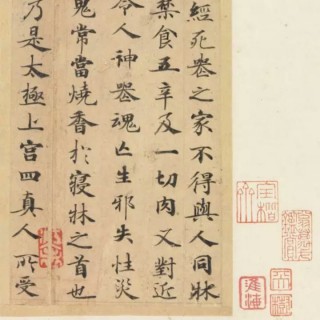 經死喪之家不得與人同牀
禁食五辛及一切肉又對近
令人神喪魂亡生邪失性災
鬼常當燒香於寢牀之首也
乃是太極上宮四真人所受